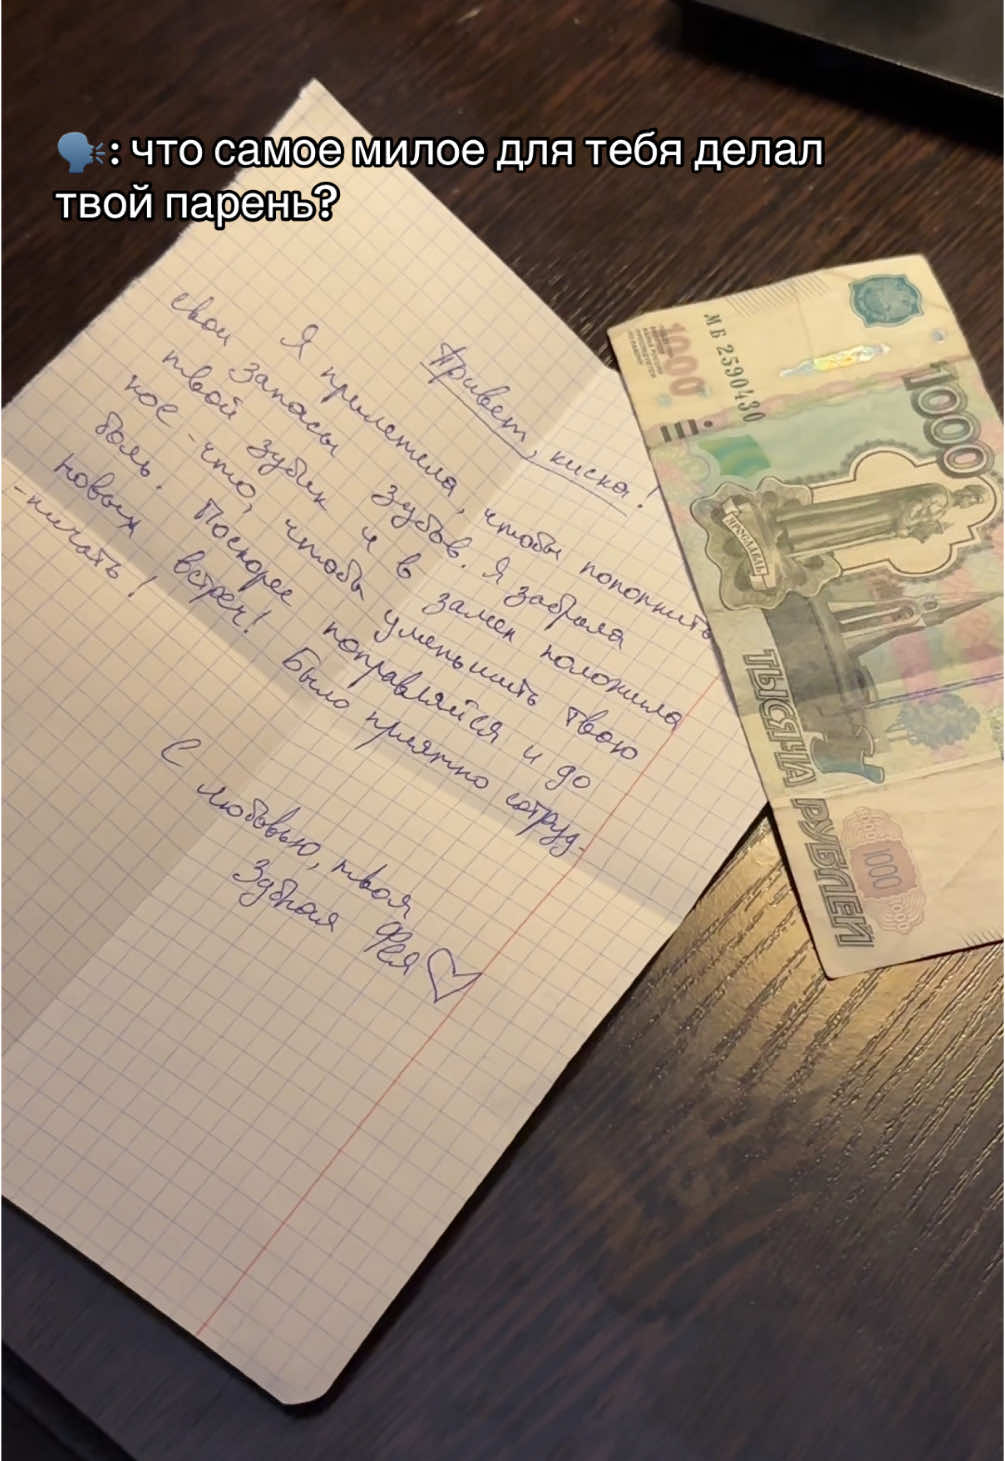 🗣️: что самое милое для тебя делал
твой парень?
Привет, киска!
Я прилетела, чтобы пополнить
свои запасы зубов. Я забрала
твой зубик и в замен положила
кое-что, чтобы уменьшить твою
боль. Поскорее поправляйся и до
новых встреч! Было приятно сотруд-
-ничать!
С любовью, твоя
Зубная Фея
МБ 2590430
1000
1000
ЯРОСЛАВЛЬ
ТЫСЯЧА РУБЛЕЙ
1000